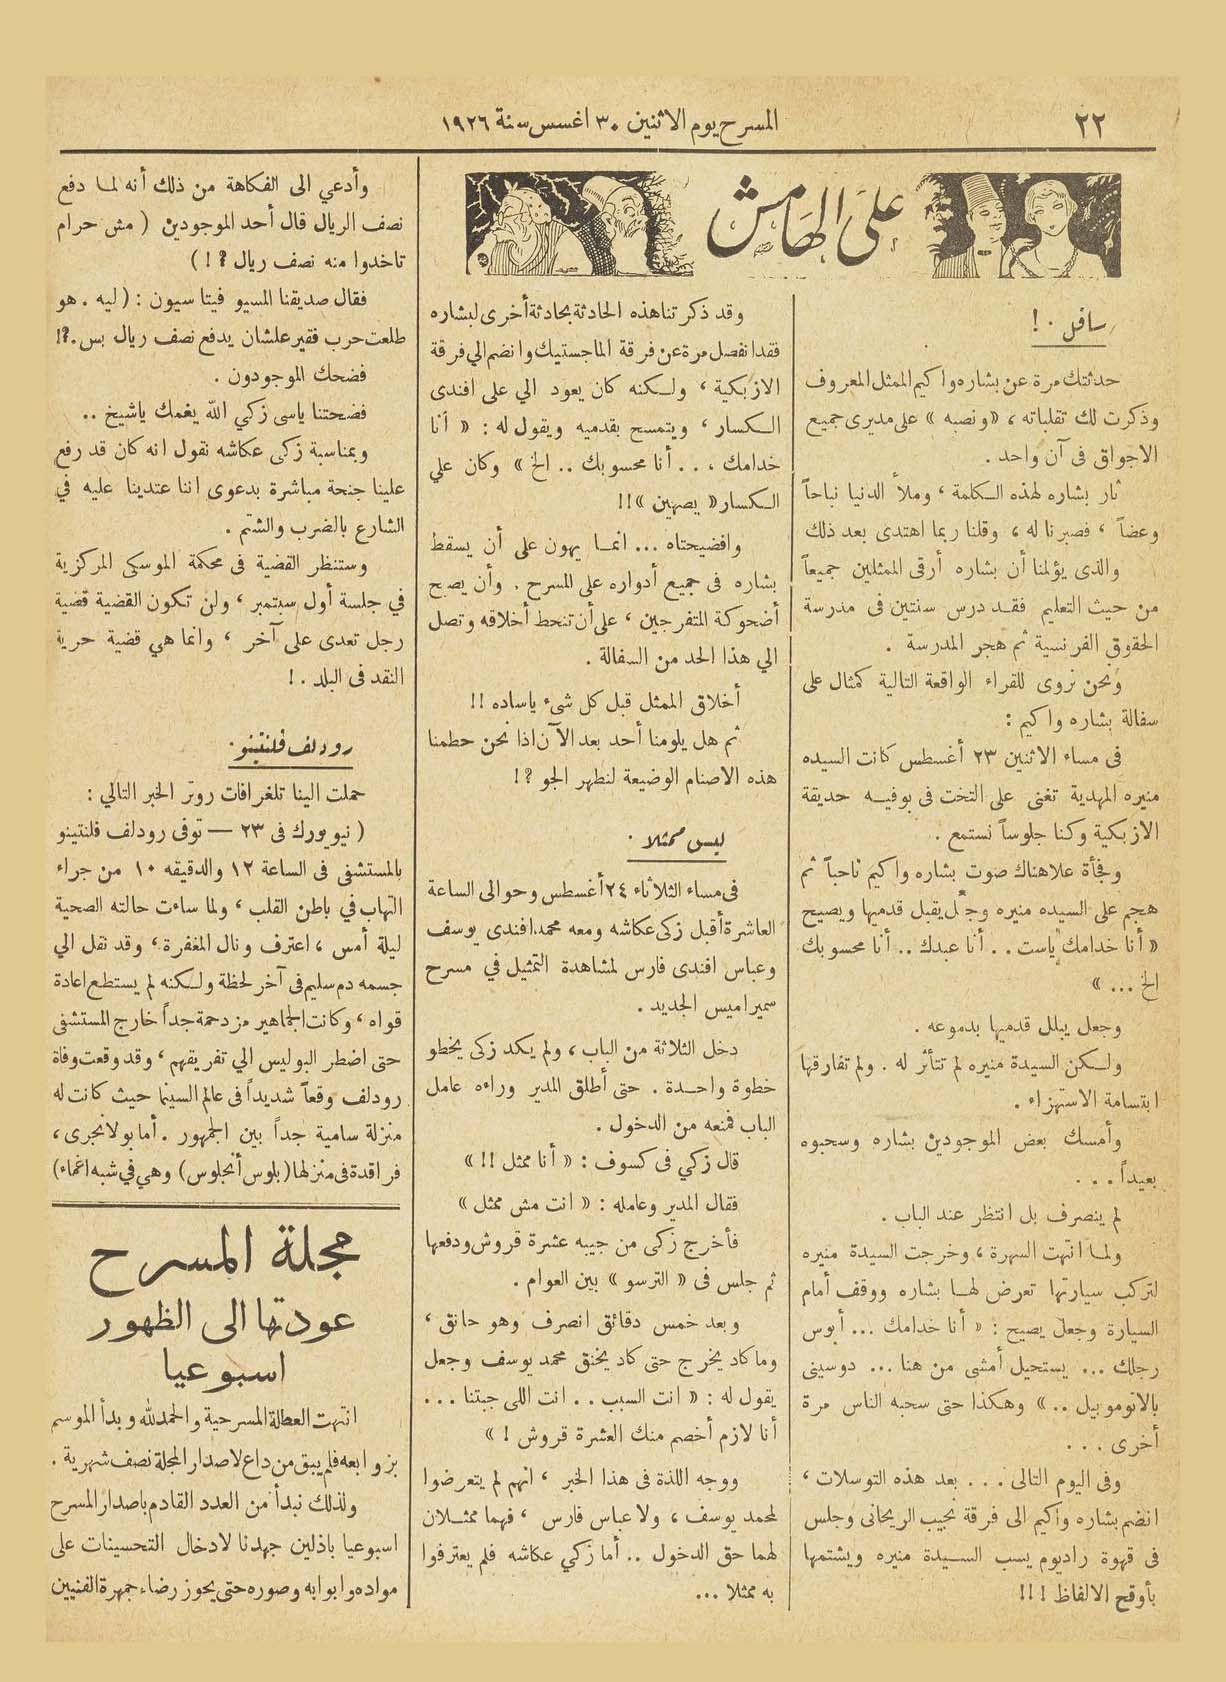 ٢٢
المسرح يوم الاثنين ٣٠ اغسس سنة ١٩٢٦
على الهامش
سافل . !
حدثتك مرة عن بشاره واكيم الممثل المعروف
وذكرت لك تقلباته ، «ونصبه » على مديرى جميع
الاجواق فى آن واحد .
ثار بشاره لهذه الكلمة ، وملأ الدنيا نباحاً
وعضاً ، فصبرنا له ، وقلنا ربما اهتدى بعد ذلك
والذى يؤلمنا أن بشاره أرقى الممثلين جميعاً
من حيث التعليم فقد درس سنتين فى مدرسة
الحقوق الفرنسية ثم هجر المدرسة .
ونحن نروى للقراء الواقعة التالية كمثال على
سفالة بشاره واكيم :
فى مساء الاثنين ٢٣ أغسطس كانت السيده
منيره المهدية تغنى على التخت فى بوفيه حديقة
الازبكية وكنا جلوساً نستمع .
وفجأة علا هناك صوت بشاره واكيم ناحباً ثم
هجم على السيده منيره وجعل يقبل قدميها ويصيح
« أنا خدامك ياست . . أنا عبدك . . أنا محسوبك
الخ ... »
وجعل يبلل قدميها بدموعه .
ولكن السيدة منيره لم تتأثر له . ولم تفارقها
ابتسامة الاستهزاء .
وأمسك بعض الموجودين بشاره وسحبوه
بعيداً . . .
لم ينصرف بل انتظر عند الباب .
ولما انتهت السهرة ، وخرجت السيدة منيره
لتركب سيارتها تعرض لها بشاره ووقف أمام
السيارة وجعل يصيح : « أنا خدامك ... أبوس
رجلك ... يستحيل أمشى من هنا ... دوسينى
بالاتوموبيل .. » وهكذا حتى سحبه الناس مرة
أخرى . . .
وفى اليوم التالى . . . بعد هذه التوسلات ،
انضم بشاره واكيم الى فرقة نجيب الريحانى وجلس
فى قهوة راديوم يسب السيدة منيره ويشتمها
بأوقح الالفاظ ! ! !
وقد ذكرتنا هذه الحادثة بحادثة أخرى لبشاره
فقد انفصل مرة عن فرقة الماجستيك وانضم الي فرقة
الازبكية ، ولكنه كان يعود الي على افندى
الكسار ، ويتمسح بقدميه ويقول له : « أنا
خدامك ، . . أنا محسوبك .. الخ » وكان علي
الكسار « يصهين » !!
وافضيحتاه ... انما يهون على أن يسقط
بشاره فى جميع أدواره على المسرح . وأن يصبح
أضحوكة المتفرجين ، على أن تنحط أخلاقه وتصل
الي هذا الحد من السفالة .
أخلاق الممثل قبل كل شىء ياساده !!
ثم هل يلومنا أحد بعد الآن اذا نحن حطمنا
هذه الاصنام الوضيعة لنطهر الجو ؟!
ليس ممثلا .
فى مساء الثلاثاء ٢٤ أغسطس وحوالى الساعة
العاشرة أقبل زكى عكاشه ومعه محمد افندى يوسف
وعباس افندى فارس لمشاهدة التمثيل في مسرح
سميراميس الجديد .
دخل الثلاثة من الباب ، ولم يكد زكى يخطو
خطوة واحدة . حتى أطلق المدير وراءه عامل
الباب فمنعه من الدخول .
قال زكي فى كسوف : « أنا ممثل !! »
فقال المدير وعامله : « انت مش ممثل »
فأخرج زكى من جيبه عشرة قروش ودفعها
ثم جلس فى « الترسو » بين العوام .
وبعد خمس دقائق انصرف وهو حانق ،
وما كاد يخرج حتى كاد يخنق محمد يوسف وجعل
يقول له : « انت السبب . . انت اللى جبتنا . . .
أنا لازم أخصم منك العشرة قروش ! »
ووجه اللذة فى هذا الخبر ، انهم لم يتعرضوا
لمحمد يوسف ، ولا عباس فارس ، فهما ممثلان
لهما حق الدخول .. أما زكي عكاشه فلم يعترفوا
به ممثلا ...
وأدعي الى الفكاهة من ذلك أنه لما دفع
نصف الريال قال أحد الموجودين ( مش حرام
تاخدوا منه نصف ريال ؟ ! )
فقال صديقنا المسيو فيتا سيون : ( ليه . هو
طلعت حرب فقير علشان يدفع نصف ريال بس .؟!
فضحك الموجودون .
فضحتنا ياسى زكي الله يغمك ياشيخ . .
وبمناسبة زكى عكاشه نقول انه كان قد رفع
علينا جنحة مباشرة بدعوى اننا عتدينا عليه في
الشارع بالضرب والشتم .
وستنظر القضية فى محكمة الموسكى المركزية
في جلسة أول سبتمبر ، ولن تكون القضية قضية
رجل تعدى على آخر ، وانما هي قضية حرية
النقد فى البلد . !
رودلف فلنتينو .
حملت الينا تلغرافات روتر الخبر التالي :
( نيويورك فى ٢٣ — توفى رودلف فلنتينو
بالمستشفى فى الساعة ١٢ والدقيقه ١٠ من جراء
التهاب في باطن القلب ، ولما ساءت حالته الصحية
ليلة أمس ، اعترف ونال المغفرة ، وقد نقل الي
جسمه دم سليم فى آخر لحظة ولكنه لم يستطع اعادة
قواه ، وكانت الجماهير مزدحمة جداً خارج المستشفى
حتى اضطر البوليس الي تفريقهم ، وقد وقعت وفاة
رودلف وقعاً شديداً فى عالم السينما حيث كانت له
منزلة سامية جداً بين الجمهور . أما بولا نجرى ،
فراقدة فى منزلها ( بلوس أنجلوس ) وهي في شبه اغماء )
مجلة المسرح
عودتها الى الظهور
اسبوعيا
انتهت العطلة المسرحية والحمد لله وبدأ الموسم
بزوابعه فلم يبق من داع لاصدار المجلة نصف شهرية .
ولذلك نبدأ من العدد القادم باصدار المسرح
اسبوعيا باذلين جهدنا لادخال التحسينات على
مواده وابوابه وصوره حتى يحوز رضاء جمهرة الفنيين